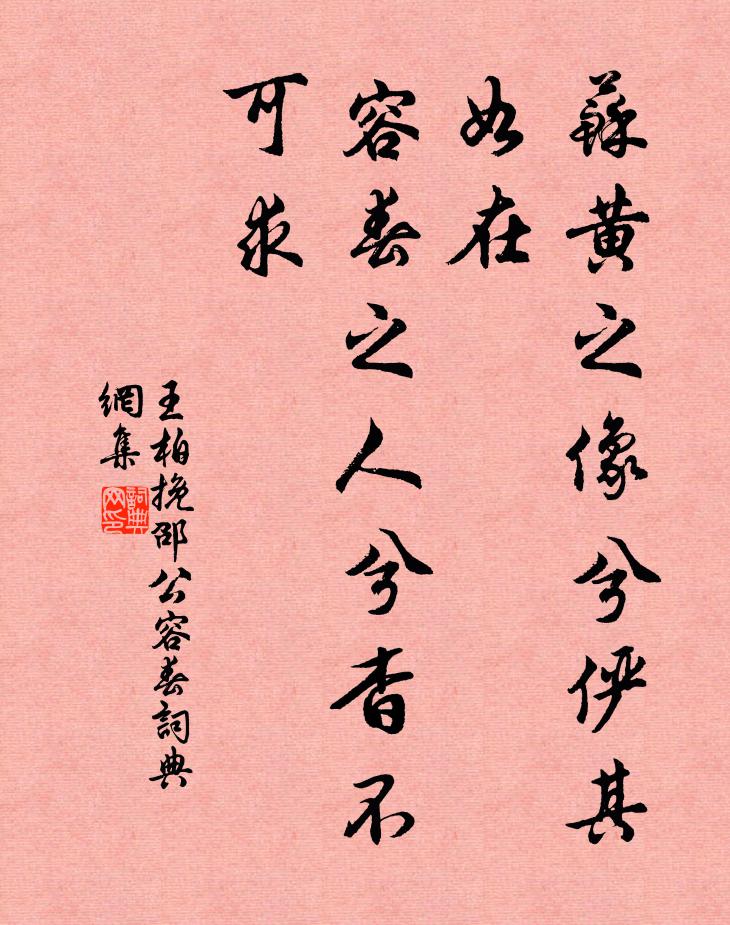 蘇黄之像兮俨其
如在
容春之人兮杳不
可求
王柏挽邵公容春詞典
網集
詞典网印